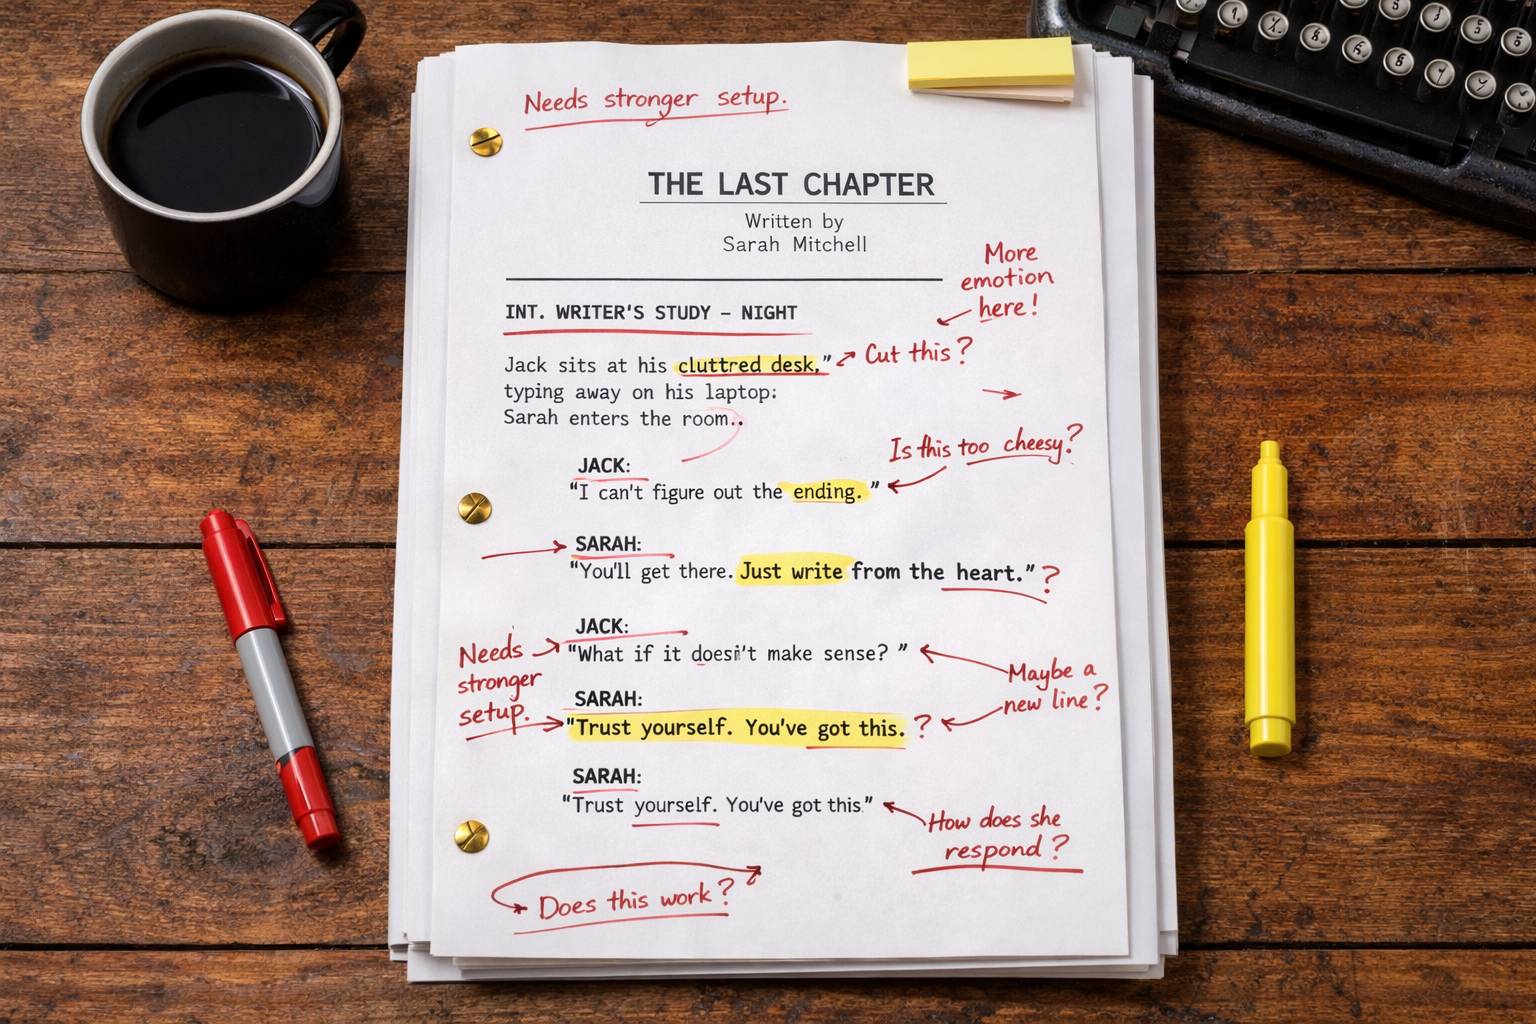 Needs stronger setup.
THE LAST CHAPTER
Written by
Sarah Mitchell
More
emotion
here!
INT. WRITER'S STUDY – NIGHT
Jack sits at his cluttred desk,"
Cut this?
typing away on his laptop:
Sarah enters the room..
Is this too cheesy?
JACK:
"I can't figure out the ending. "
SARAH:
"You'll get there. Just write from the heart." ?
JACK:
"What if it doesi't make sense? "
Needs
stronger
setup.
Maybe a
new line?
SARAH:
"Trust yourself. You've got this. ?
SARAH:
"Trust yourself. You've got this."
How does she
respond?
Does this work?